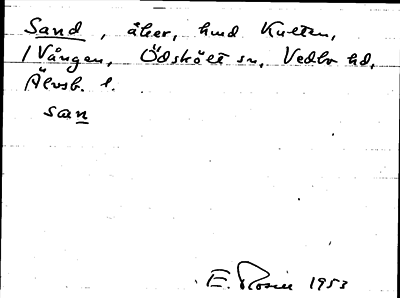 Sand, åker, hmd Kulten,
1 Vången, Ödskölt sn, Vedbo hd,
Älvsb. l.
san
E. Rosén 1953